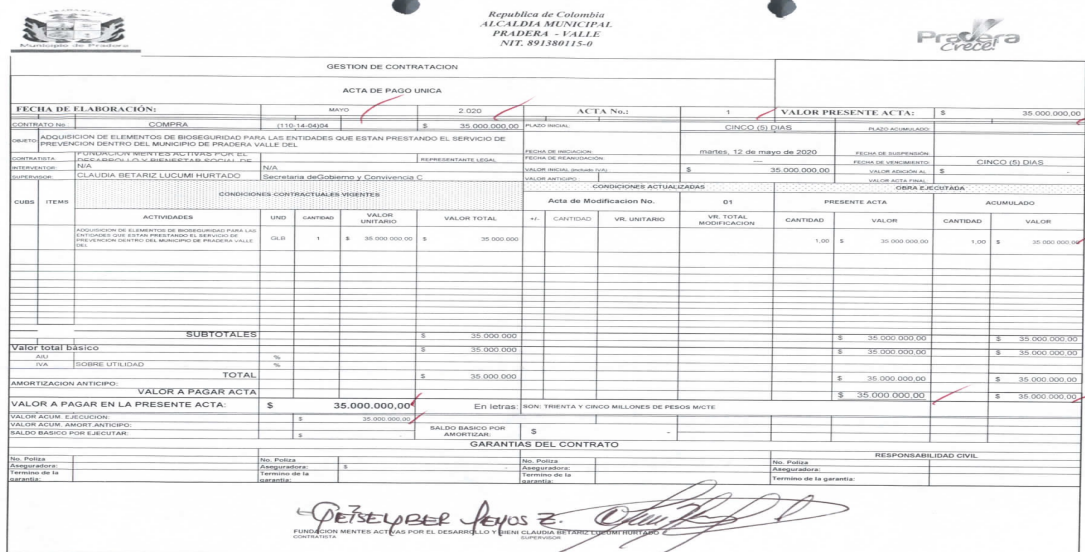 Republica de Colombia
ALCALDIA MUNICIPAL
PRADERA - VALLE
NIT. 891380115-0
Municipio de Pradera
Pradera
Crece!
GESTION DE CONTRATACION
ACTA DE PAGO UNICA
FECHA DE ELABORACIÓN: MAYO 2.020 ACTA No.: 1 VALOR PRESENTE ACTA: $ 35.000.000,00
CONTRATO No.: COMPRA (110-14-04)04 $ 35.000.000,00 PLAZO INICIAL: CINCO (5) DIAS PLAZO ACUMULADO:
OBJETO: ADQUISICION DE ELEMENTOS DE BIOSEGURIDAD PARA LAS ENTIDADES QUE ESTAN PRESTANDO EL SERVICIO DE
PREVENCION DENTRO DEL MUNICIPIO DE PRADERA VALLE DEL
FECHA DE INICIACION: martes, 12 de mayo de 2020 FECHA DE SUSPENSIÓN:
CONTRATISTA: FUNDACION MENTES ACTIVAS POR EL
DESARROLLO Y BIENESTAR SOCIAL DE REPRESENTANTE LEGAL FECHA DE REANUDACIÓN: --- FECHA DE VENCIMIENTO: CINCO (5) DIAS
INTERVENTOR: N/A N/A VALOR INICIAL (Incluido IVA): $ 35.000.000,00 VALOR ADICIÓN AL $ -
SUPERVISOR: CLAUDIA BETARIZ LUCUMI HURTADO Secretaria deGobierno y Convivencia C VALOR ANTICIPO: VALOR ACTA FINAL
CONDICIONES CONTRACTUALES VIGENTES CONDICIONES ACTUALIZADAS OBRA EJECUTADA
CUBS ITEMS Acta de Modificacion No. 01 PRESENTE ACTA ACUMULADO
ACTIVIDADES UND CANTIDAD VALOR UNITARIO VALOR TOTAL +/- CANTIDAD VR. UNITARIO VR. TOTAL MODIFICACION CANTIDAD VALOR CANTIDAD VALOR
ADQUISICION DE ELEMENTOS DE BIOSEGURIDAD PARA LAS
ENTIDADES QUE ESTAN PRESTANDO EL SERVICIO DE
PREVENCION DENTRO DEL MUNICIPIO DE PRADERA VALLE
DEL
GLB 1 $ 35.000.000,00 $ 35.000.000 1,00 $ 35.000.000,00 1,00 $ 35.000.000,00
SUBTOTALES $ 35.000.000 $ 35.000.000,00 $ 35.000.000,00
Valor total básico $ 35.000.000 $ 35.000.000,00 $ 35.000.000,00
AIU %
IVA SOBRE UTILIDAD %
TOTAL $ 35.000.000 $ 35.000.000,00 $ 35.000.000,00
AMORTIZACION ANTICIPO:
VALOR A PAGAR ACTA $ 35.000.000,00 $ 35.000.000,00
VALOR A PAGAR EN LA PRESENTE ACTA: $ 35.000.000,00 En letras: SON: TREINTA Y CINCO MILLONES DE PESOS M/CTE
VALOR ACUM. EJECUCIÓN: $ 35.000.000,00
VALOR ACUM. AMORT.ANTICIPO: SALDO BASICO POR AMORTIZAR: $ -
SALDO BASICO POR EJECUTAR: $ -
GARANTIAS DEL CONTRATO
RESPONSABILIDAD CIVIL
No. Poliza No. Poliza No. Poliza No. Poliza
Aseguradora: Aseguradora: $ - Aseguradora: Aseguradora:
Termino de la garantia: Termino de la garantia: Termino de la garantia: Termino de la garantia:
FUNDACION MENTES ACTIVAS POR EL DESARROLLO Y BIENI CLAUDIA BETARIZ LUCUMI HURTADO
CONTRATISTA SUPERVISOR